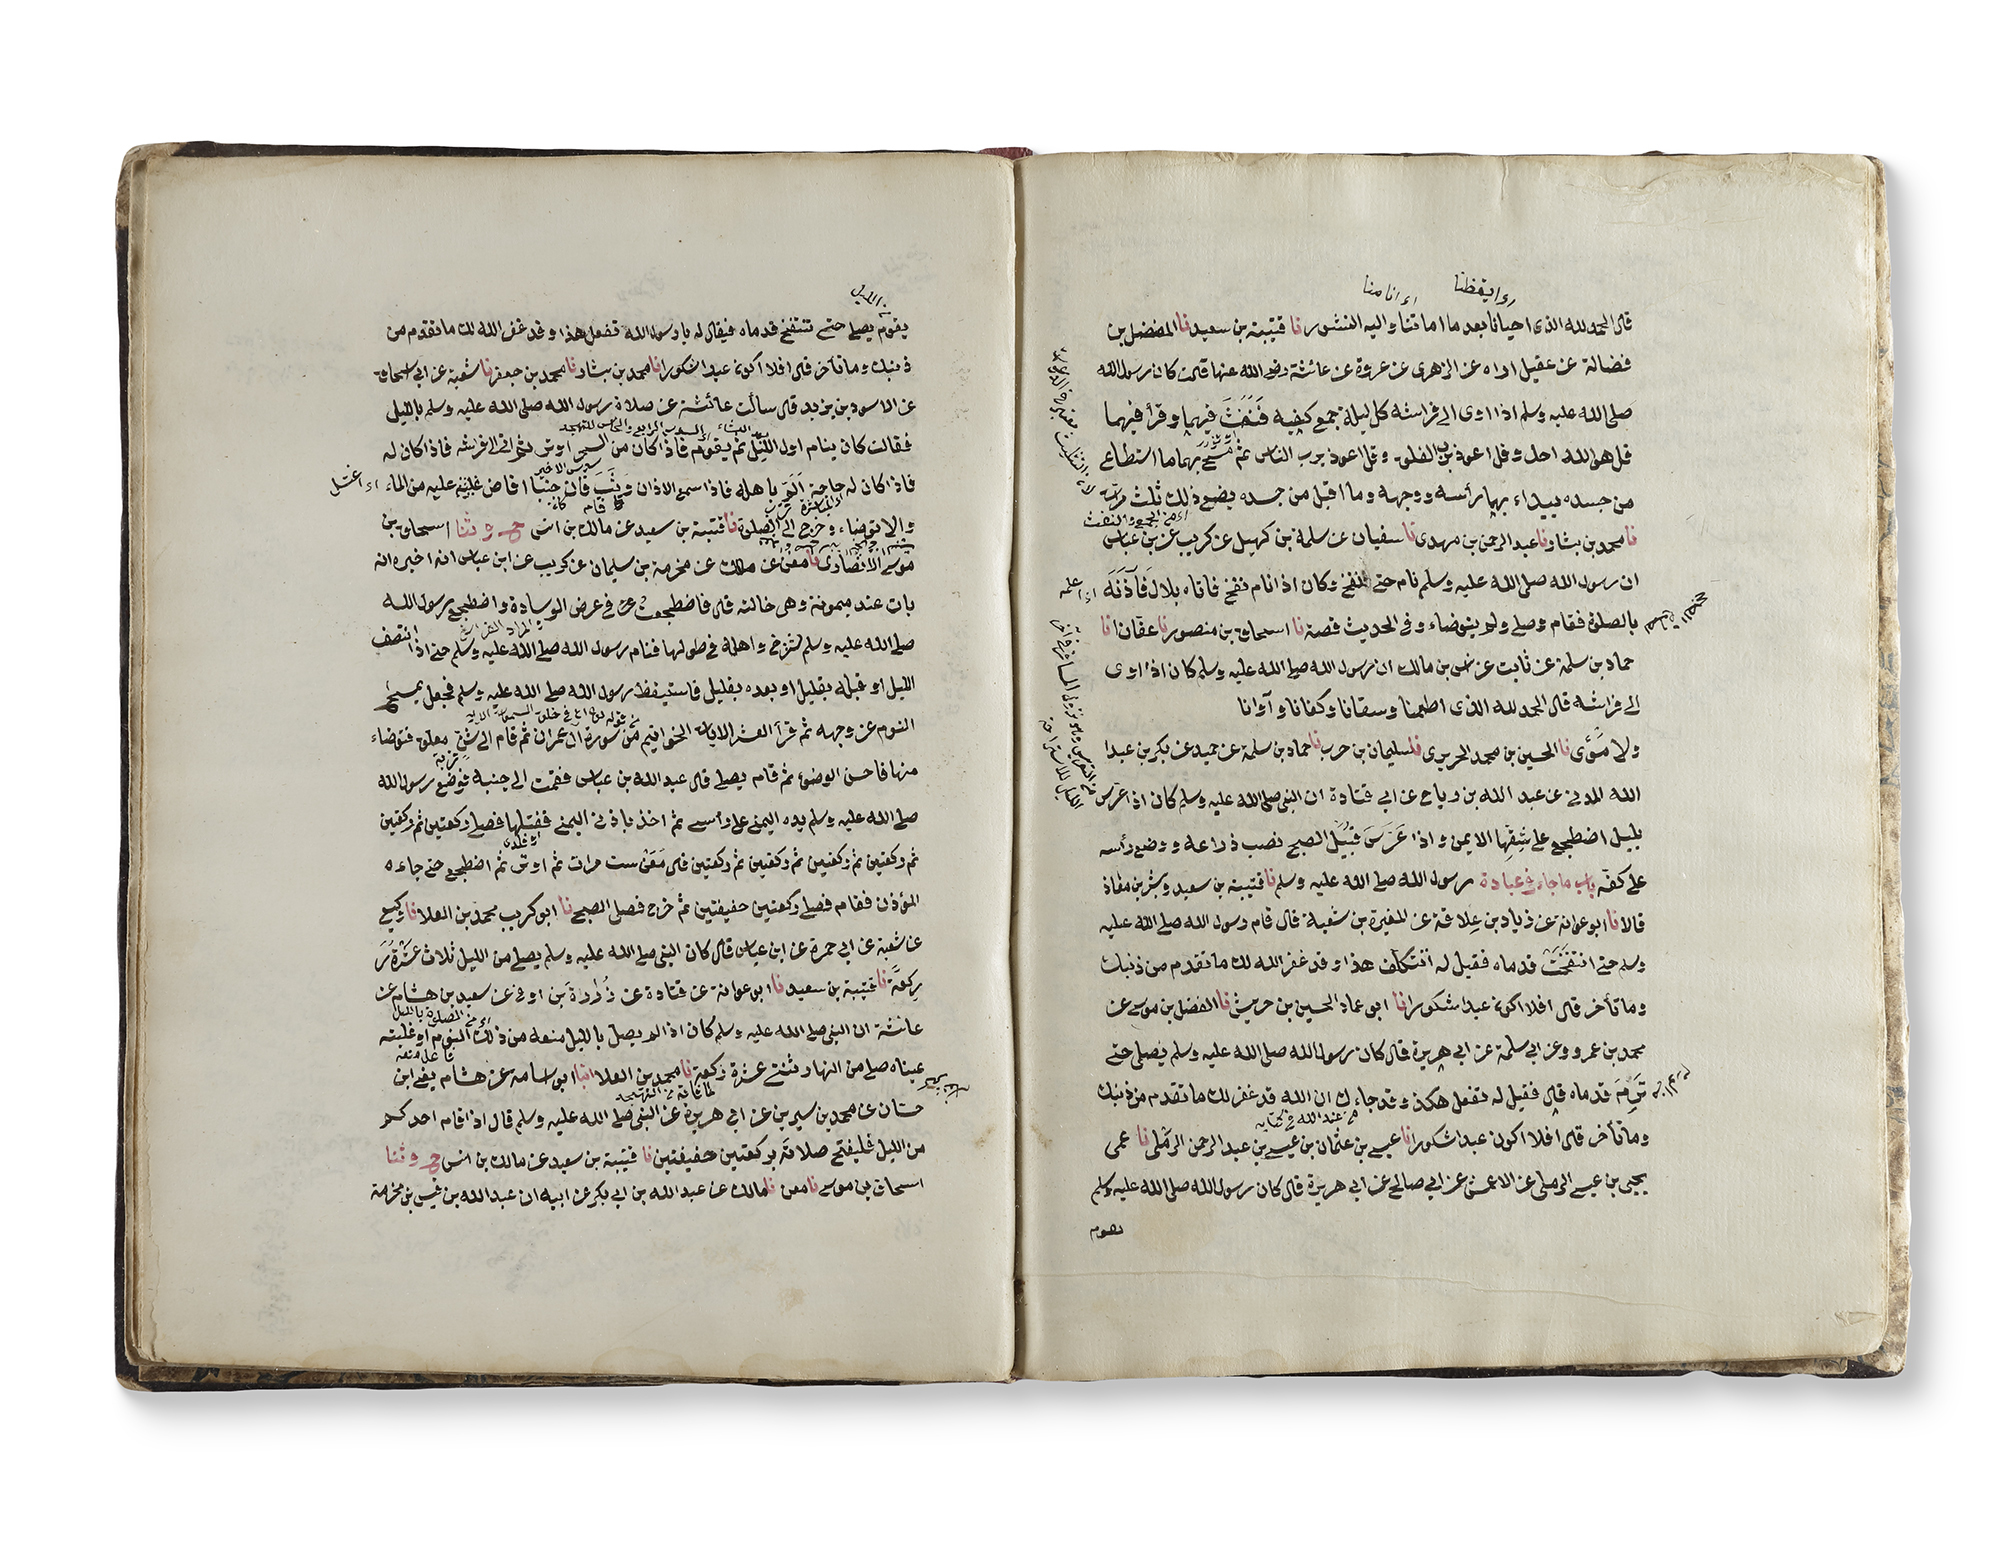 قال الحمد لله الذى احيانا بعد ما اماتنا واليه النشور نا قتيبة بن سعيد نا المفضل بن
فضالة عن عقيل اراه عن الزهرى عن عروة عن عائشة رضى الله عنها قالت كان رسول الله
صلى الله عليه وسلم اذا اوى الى فراشه كل ليلة جمع كفيه فَنَفَثَ فيهما وقرأ فيهما
قل هو الله احد وقل اعوذ برب الفلق وقل اعوذ برب الناس ثم مسح بهما ما استطاع
من جسده يبداء بهما رأسه ووجهه وما اقبل من جسده يصنع ذلك ثلث مرات
نا محمد بن بشار نا عبد الرحمن بن مهدى نا سفيان عن سلمة بن كهيل عن كريب عن بن عباس
ان رسول الله صلى الله عليه وسلم نام حتى نفخ وكان اذا نام نفخ فاتاه بلال فَآذَنَه
بالصلوة فقام وصلى ولم يتوضاء وفى الحديث قصة نا اسحاق بن منصور نا عفان انا
حماد بن سلمة عن ثابت عن انس بن مالك ان رسول الله صلى الله عليه وسلم كان اذا اوى
الى فراشه قال الحمد لله الذى اطعمنا وسقانا وكفانا وآوانا
ولا مُؤى نا الحسين بن محمد الحريرى نا سليمان بن حرب نا حماد بن سلمة عن حميد عن بكر بن عبد
الله المدنى عن عبد الله بن رباح عن ابى قتادة ان النبى صلى الله عليه وسلم كان اذا عرّس
بليل اضطجع على شقها الايمن واذا عَرَّسَ قُبَيْلَ الصبح نصب ذراعه ووضع رأسه
على كفه باب ما جاء فى عبادة رسول الله صلى الله عليه وسلم نا قتيبة بن سعيد وبشر بن معاذ
قالا نا ابو عوانة عن زياد بن عِلاقة عن المغيرة بن شعبة قال قام رسول الله صلى الله عليه
وسلم حتى انتفخَتْ قدماه فقيل له اتتكلّف هذا وقد غفر الله لك ما تقدم من ذنبك
وما تأخر قال افلا اكون عبدا شكورا نا ابو عمار الحسين بن حريث نا الفضل بن موسى عن
محمد بن عمرو عن ابى سلمة عن ابى هريرة قال كان رسول الله صلى الله عليه وسلم يصلى حتى
تَرِمَ قدماه قال فقيل له تفعل هكذا وقد جاءك ان الله قد غفر لك ما تقدم من ذنبك
وما تأخر قال افلا اكون عبدا شكورا نا عيسى بن عثمان بن عيسى بن عبد الرحمن الرملى نا عمى
يحيى بن عيسى الرملى عن الاعمش عن ابى صالح عن ابى هريرة قال كان رسول الله صلى الله عليه وسلم
يقوم
يقوم يصلى حتى تنتفخ قدماه فيقال له يا رسول الله تفعل هذا وقد غفر الله لك ما تقدم من
ذنبك وما تأخر قال افلا اكون عبدا شكورا نا محمد بن بشار نا محمد بن جعفر نا شعبة عن ابى اسحاق
عن الاسود بن يزيد قال سألت عائشة عن صلاة رسول الله صلى الله عليه وسلم بالليل
فقالت كان ينام اول الليل ثم يقوم فاذا كان من السحر اوتر ثم اتى الى فراشه فاذا كان له
فاذا كان له حاجة الَمَّ باهله فاذا سمع الاذان وَثَبَ فان كان جنبا افاض عليه من الماء
والا توضاء وخرج الى الصلوة نا قتيبة بن سعيد عن مالك بن انس ح وثنا اسحاق بن
موسى الانصارى نا معن عن مالك عن مخرمة بن سليمان عن كريب عن ابن عباس انه اخبره انه
بات عند ميمونة وهى خالته قال فاضطجعت فى عرض الوسادة واضطجع رسول الله
صلى الله عليه وسلم واهله فى طولها فنام رسول الله صلى الله عليه وسلم حتى اذا انتصف
الليل او قبله بقليل او بعده بقليل فاستيقظ رسول الله صلى الله عليه وسلم فجعل يمسح
النوم عن وجهه ثم قرأ العشر الايات الخواتيم من سورة آل عمران ثم قام الى شن معلق فتوضاء
منها فاحسن الوضوء ثم قام يصلى قال عبد الله بن عباس فقمت الى جنبه فوضع رسول الله
صلى الله عليه وسلم يده اليمنى على رأسى ثم اخذ باذنى اليمنى ففتلها فصلى ركعتين ثم ركعتين
ثم ركعتين ثم ركعتين ثم ركعتين ثم ركعتين قال مَعَنٌ ست مرات ثم اوتر ثم اضطجع حتى جاءه
المؤذن فقام فصلى ركعتين خفيفتين ثم خرج فصلى الصبح نا ابو كريب محمد بن العلا نا وكيع
عن شعبة عن ابى حمرة عن ابن عباس قال كان النبى صلى الله عليه وسلم يصلى من الليل ثلاث عشرة
ركعة نا قتيبة بن سعيد نا ابو عوانة عن قتادة عن زُرارة بن اوفى عن سعيد بن هشام عن
عائشة ان النبى صلى الله عليه وسلم كان اذا لم يصل بالليل منعه من ذلك النوم او غلبته
عيناه صلى من النهار ثنتى عشرة ركعة نا محمد بن العلا انبا ابو اسامة عن هشام يعنى ابن
حسّان عن محمد بن سيرين عن ابى هريرة عن النبى صلى الله عليه وسلم قال اذا قام احدكم
من الليل فليفتح صلاته بركعتين خفيفتين نا قتيبة بن سعيد عن مالك بن انس ح وثنا
اسحاق بن موسى نا معن نا مالك عن عبد الله بن ابى بكر عن ابيه ان عبد الله بن قيس بن مخرمة